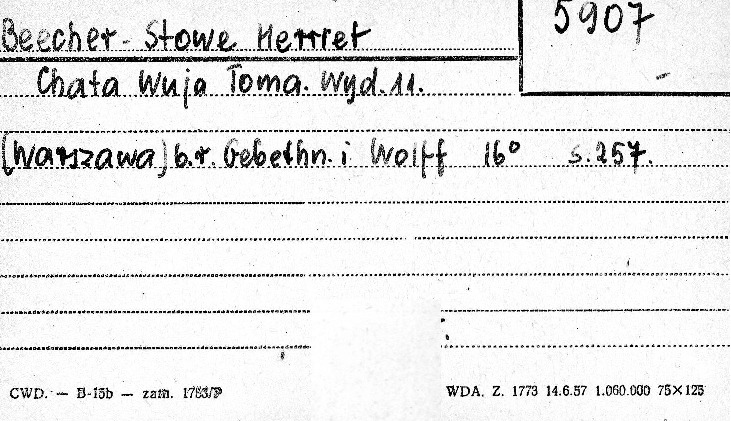 5907
Beecher-Stowe Herriet
Chata Wuja Toma. Wyd. 11.
(Warszawa) b.r. Gebethn. i Wolff 16° s. 257.
CWD. — B-15b — zam. 1783/P
WDA. Z. 1773 14.6.57 1.060.000 75×125